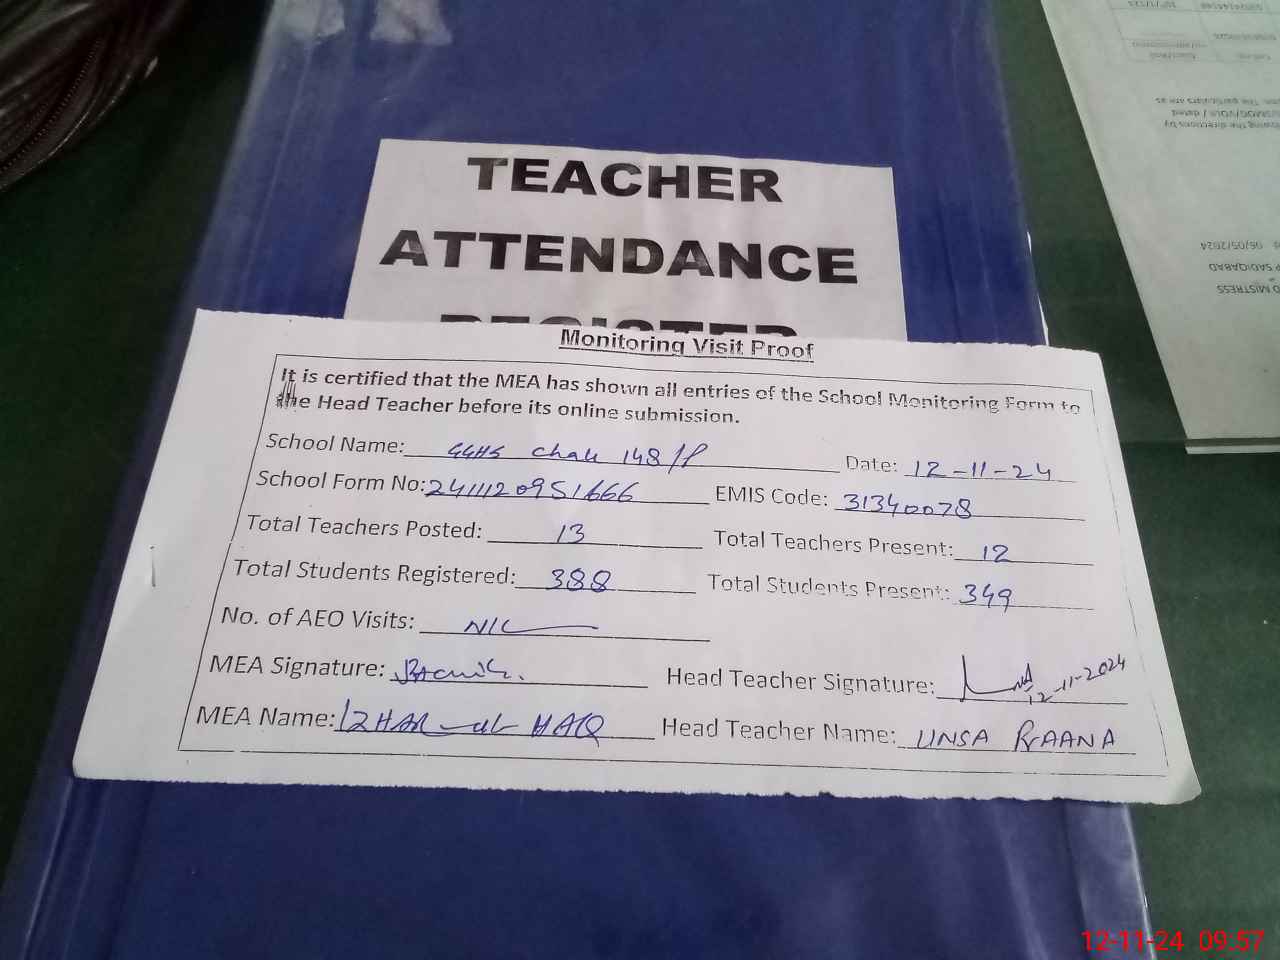 TEACHER
ATTENDANCE
REGISTER
Monitoring Visit Proof
It is certified that the MEA has shown all entries of the School Monitoring Form to
the Head Teacher before its online submission.
School Name: GGHS Chak 148/P Date: 12-11-24
School Form No: 2411120951666 EMIS Code: 31340078
Total Teachers Posted: 13 Total Teachers Present: 12
Total Students Registered: 388 Total Students Present: 349
No. of AEO Visits: NIL
MEA Signature: Head Teacher Signature: 12-11-2024
MEA Name: IZHAR-ul-HAQ Head Teacher Name: UNSA RAANA
06/05/2024
SADIQABAD
MISTRESS
owing the directions by
dated
The particulars are as
12-11-24 09:57